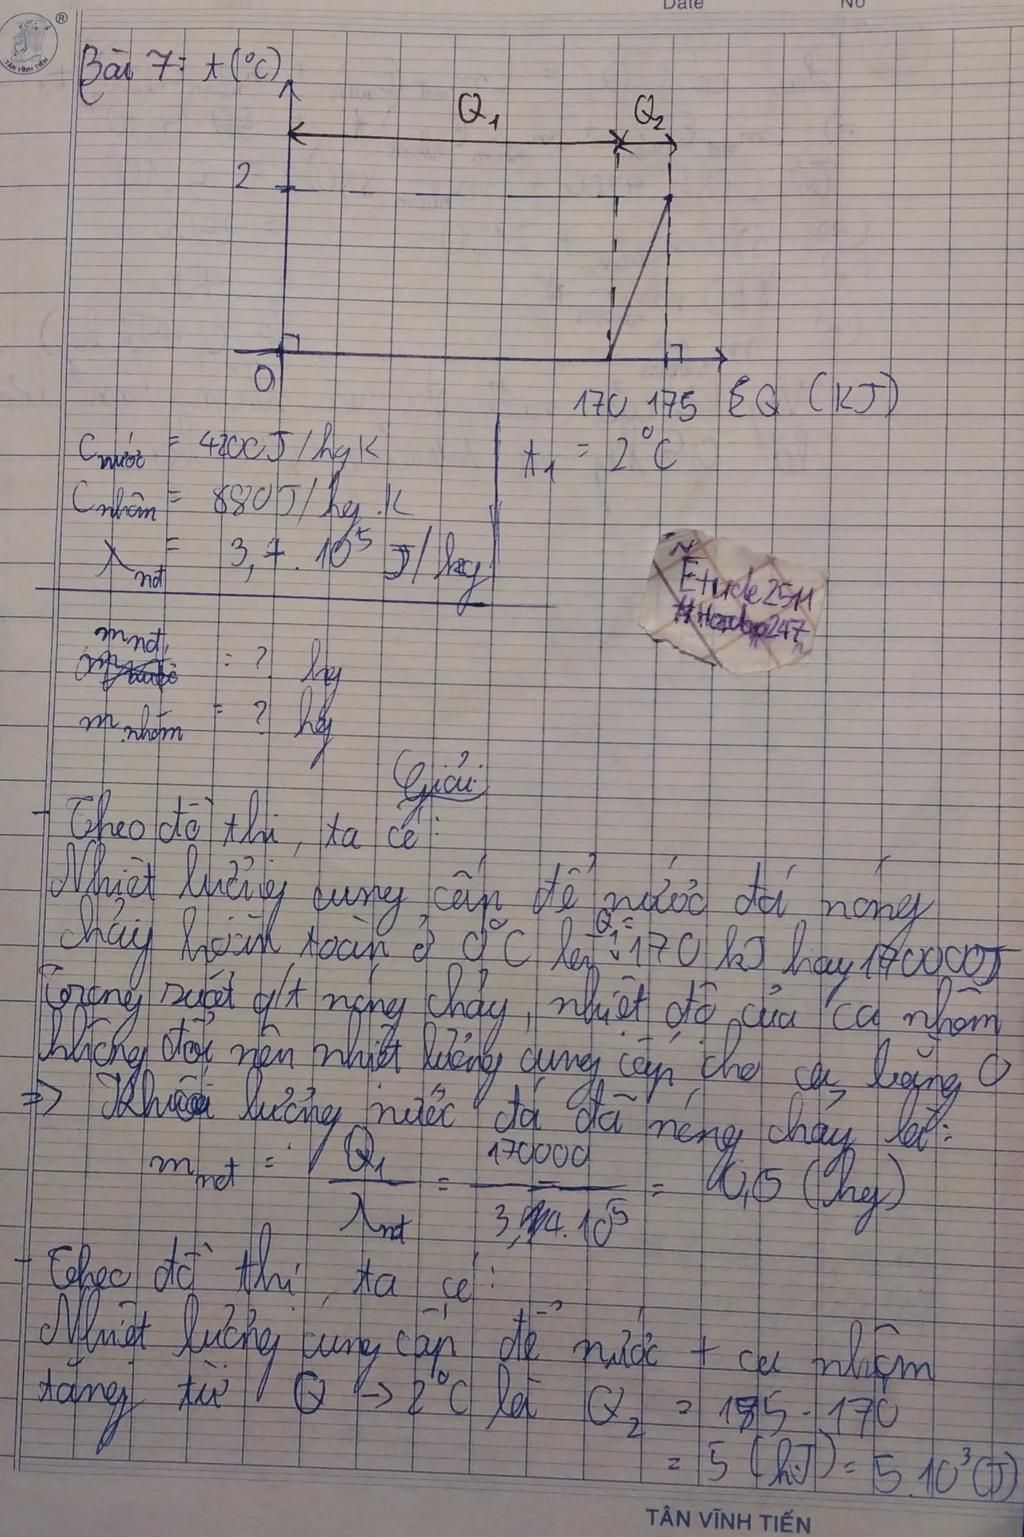 Date No
®
TÂN VĨNH TIẾN
Bài 7: t (°C)
Q1 Q2
2
0
170 175 ΣQ (KJ)
Cnước = 4200J/kgK
t1 = 2°C
Cnhôm = 880J/kg.K
λnđ = 3,4.10⁵ J/kg
Etude2511
#Hoctap247
mnđ = ? kg
mnhôm = ? kg
Giải
- Theo đồ thị, ta có:
Nhiệt lượng cung cấp để nước đá nóng
chảy hoàn toàn ở 0°C là Q1 = 170 kJ hay 170000J
Trong suốt q/t nóng chảy, nhiệt độ của ca nhôm
không đổi nên nhiệt lượng cung cấp cho ca bằng 0
=> Khối lượng nước đá đã nóng chảy là:
mnđ = Q1/λnđ = 170000/3,4.10⁵ = 0,5 (kg)
- Theo đồ thị, ta có:
Nhiệt lượng cung cấp để nước + ca nhôm
tăng từ 0 → 2°C là Q2 = 175 - 170
= 5 (kJ) = 5.10³ (J)
TÂN VĨNH TIẾN